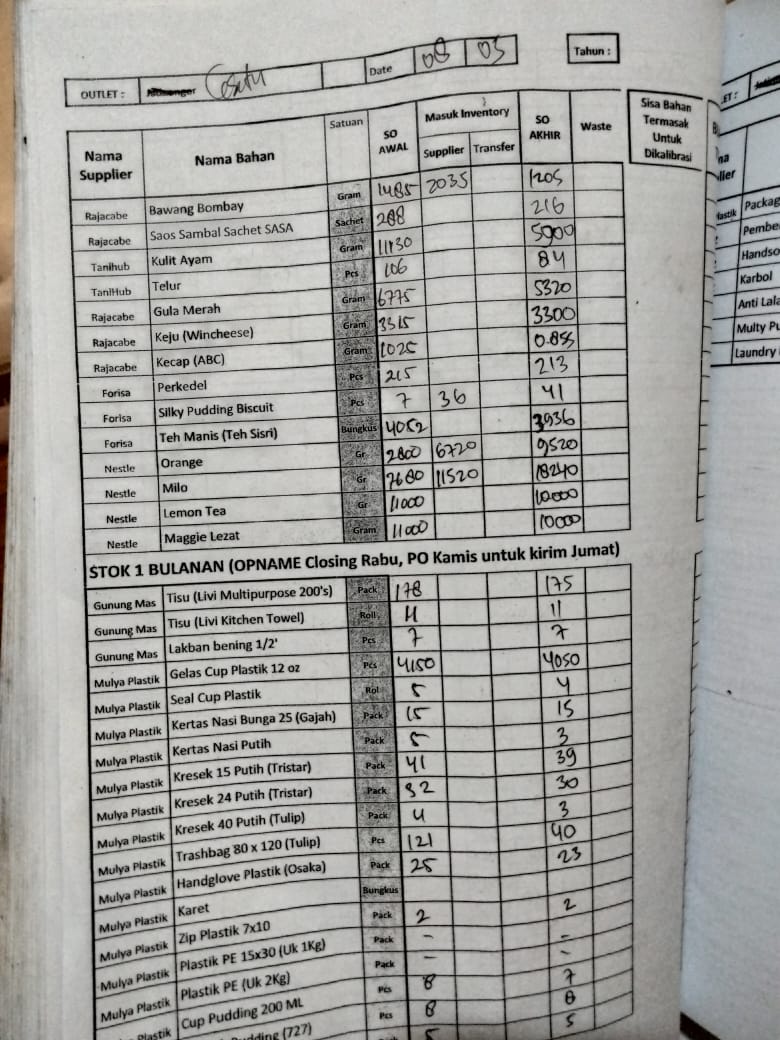 OUTLET : Date 08 03 Tahun :
Nama Supplier Nama Bahan Satuan SO AWAL Masuk Inventory Supplier Transfer SO AKHIR Waste Sisa Bahan Termasak Untuk Dikalibrasi
Rajacabe Bawang Bombay Gram 1485 2035 1205
Rajacabe Saos Sambal Sachet SASA Sachet 288 216
Tanihub Kulit Ayam Gram 11130 5900
TaniHub Telur Pcs 106 84
Rajacabe Gula Merah Gram 6775 5320
Rajacabe Keju (Wincheese) Gram 3315 3300
Rajacabe Kecap (ABC) Gram 1025 0.855
Forisa Perkedel Pcs 215 213
Forisa Silky Pudding Biscuit Pcs 7 36 41
Forisa Teh Manis (Teh Sisri) Bungkus 4052 3936
Nestle Orange Gr 2800 6720 9520
Nestle Milo Gr 7680 11520 18240
Nestle Lemon Tea Gr 11000 10000
Nestle Maggie Lezat Gram 11000 10000
STOK 1 BULANAN (OPNAME Closing Rabu, PO Kamis untuk kirim Jumat)
Gunung Mas Tisu (Livi Multipurpose 200's) Pack 178 175
Gunung Mas Tisu (Livi Kitchen Towel) Roll 11 11
Gunung Mas Lakban bening 1/2' Pcs 7 7
Mulya Plastik Gelas Cup Plastik 12 oz Pcs 4150 4050
Mulya Plastik Seal Cup Plastik Rol 5 4
Mulya Plastik Kertas Nasi Bunga 25 (Gajah) Pack 15 15
Mulya Plastik Kertas Nasi Putih Pack 5 3
Mulya Plastik Kresek 15 Putih (Tristar) Pack 41 39
Mulya Plastik Kresek 24 Putih (Tristar) Pack 32 30
Mulya Plastik Kresek 40 Putih (Tulip) Pack 4 3
Mulya Plastik Trashbag 80 x 120 (Tulip) Pcs 121 40
Mulya Plastik Handglove Plastik (Osaka) Pack 25 23
Mulya Plastik Karet Bungkus
Mulya Plastik Zip Plastik 7x10 Pack 2 2
Mulya Plastik Plastik PE 15x30 (Uk 1Kg) Pack - -
Mulya Plastik Plastik PE (Uk 2Kg) Pack - -
Plastik Cup Pudding 200 ML Pcs 8 7
Pudding (727) Pcs 8 8
Pack 5 5
ET :
na
lier
lastik Packag
Pembe
Handso
Karbol
Anti Lala
Multy Pu
Laundry